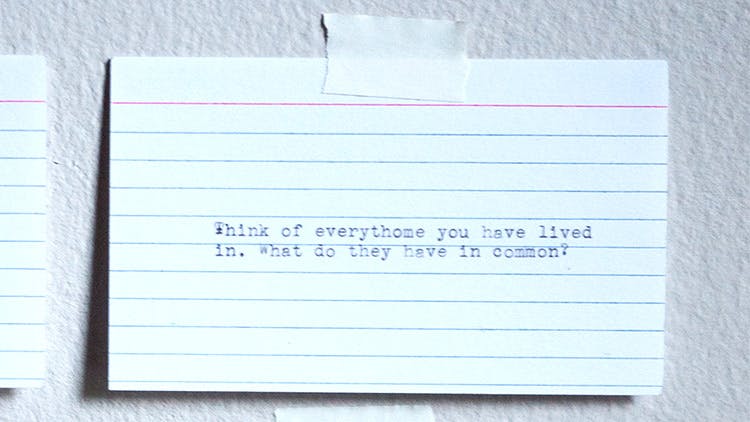 Think of everythome you have lived
in. What do they have in common?